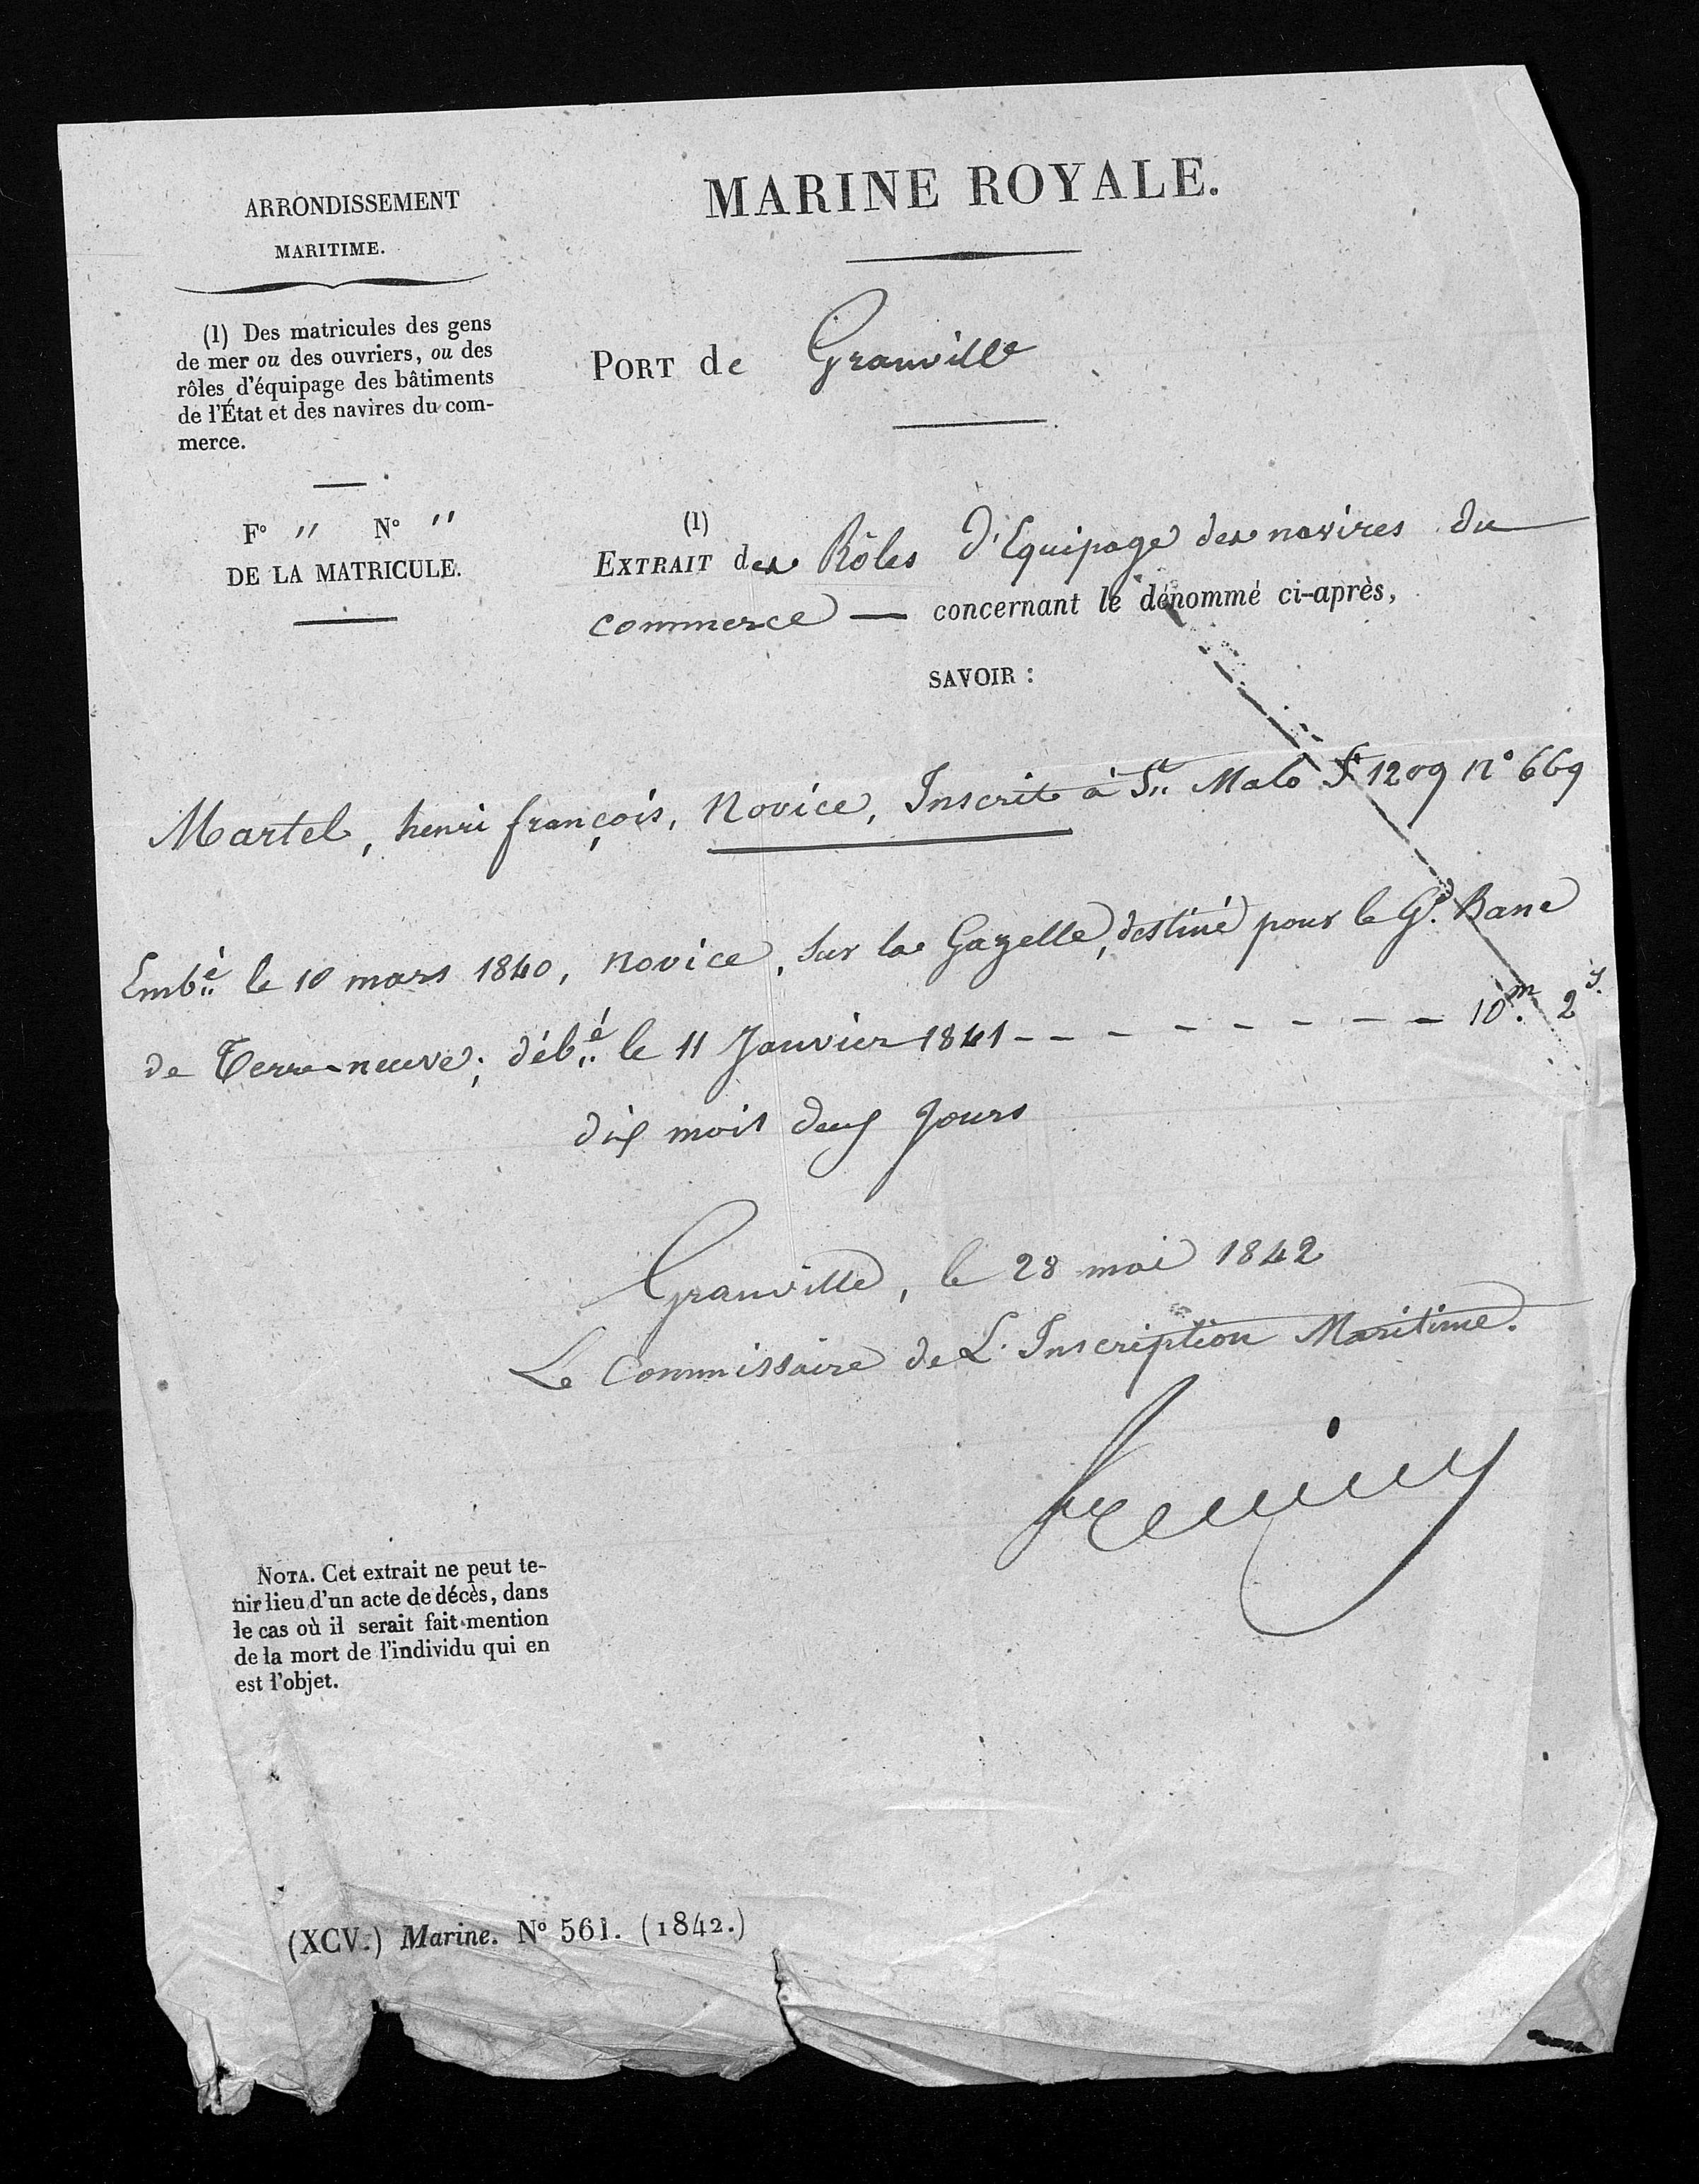 ARRONDISSEMENT
MARITIME.
(1) Des matricules des gens
de mer ou des ouvriers, ou des
rôles d'équipage des bâtiments
de l'État et des navires du com-
merce.
F° " N° "
DE LA MATRICULE.
MARINE ROYALE.
PORT de Granville
(1)
EXTRAIT des Rôles d'Equipage des navires du
commerce — concernant le dénommé ci-après,
SAVOIR :
Martel, henri françois, Novice, Inscrit à St. Malo f° 1209 n° 669
Embé le 10 mars 1840, novice, sur la Gazelle, destiné pour le Gd. Banc
de Terre-neuve; débé le 11 Janvier 1841 - - - - - - - - 10m. 2j.
dix mois deux Jours
Granville, le 28 mai 1842
Le Commissaire de L'Inscription Maritime.
NOTA. Cet extrait ne peut te-
nir lieu d'un acte de décès, dans
le cas où il serait fait mention
de la mort de l'individu qui en
est l'objet.
(XCV.) Marine. N° 561. (1842.)